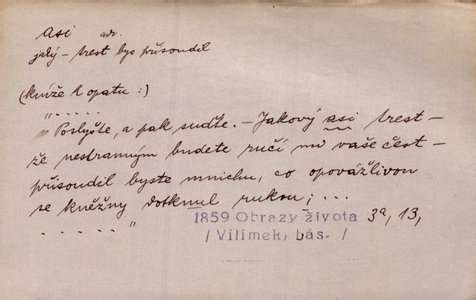 Asi adv.
jaký – trest bys přisoudil
(kníže k opatu:)
" . . . . .
" Poslyšte, a pak suďte. – Jakový asi trest –
že nestranným budete ručí mi vaše čest –
přisoudil byste mnichu, co opovážlivou
se kněžny dotknul rukou; ...
. . . . . "
1859 Obrazy života 3a, 13,
/ Vilímek, bás. /